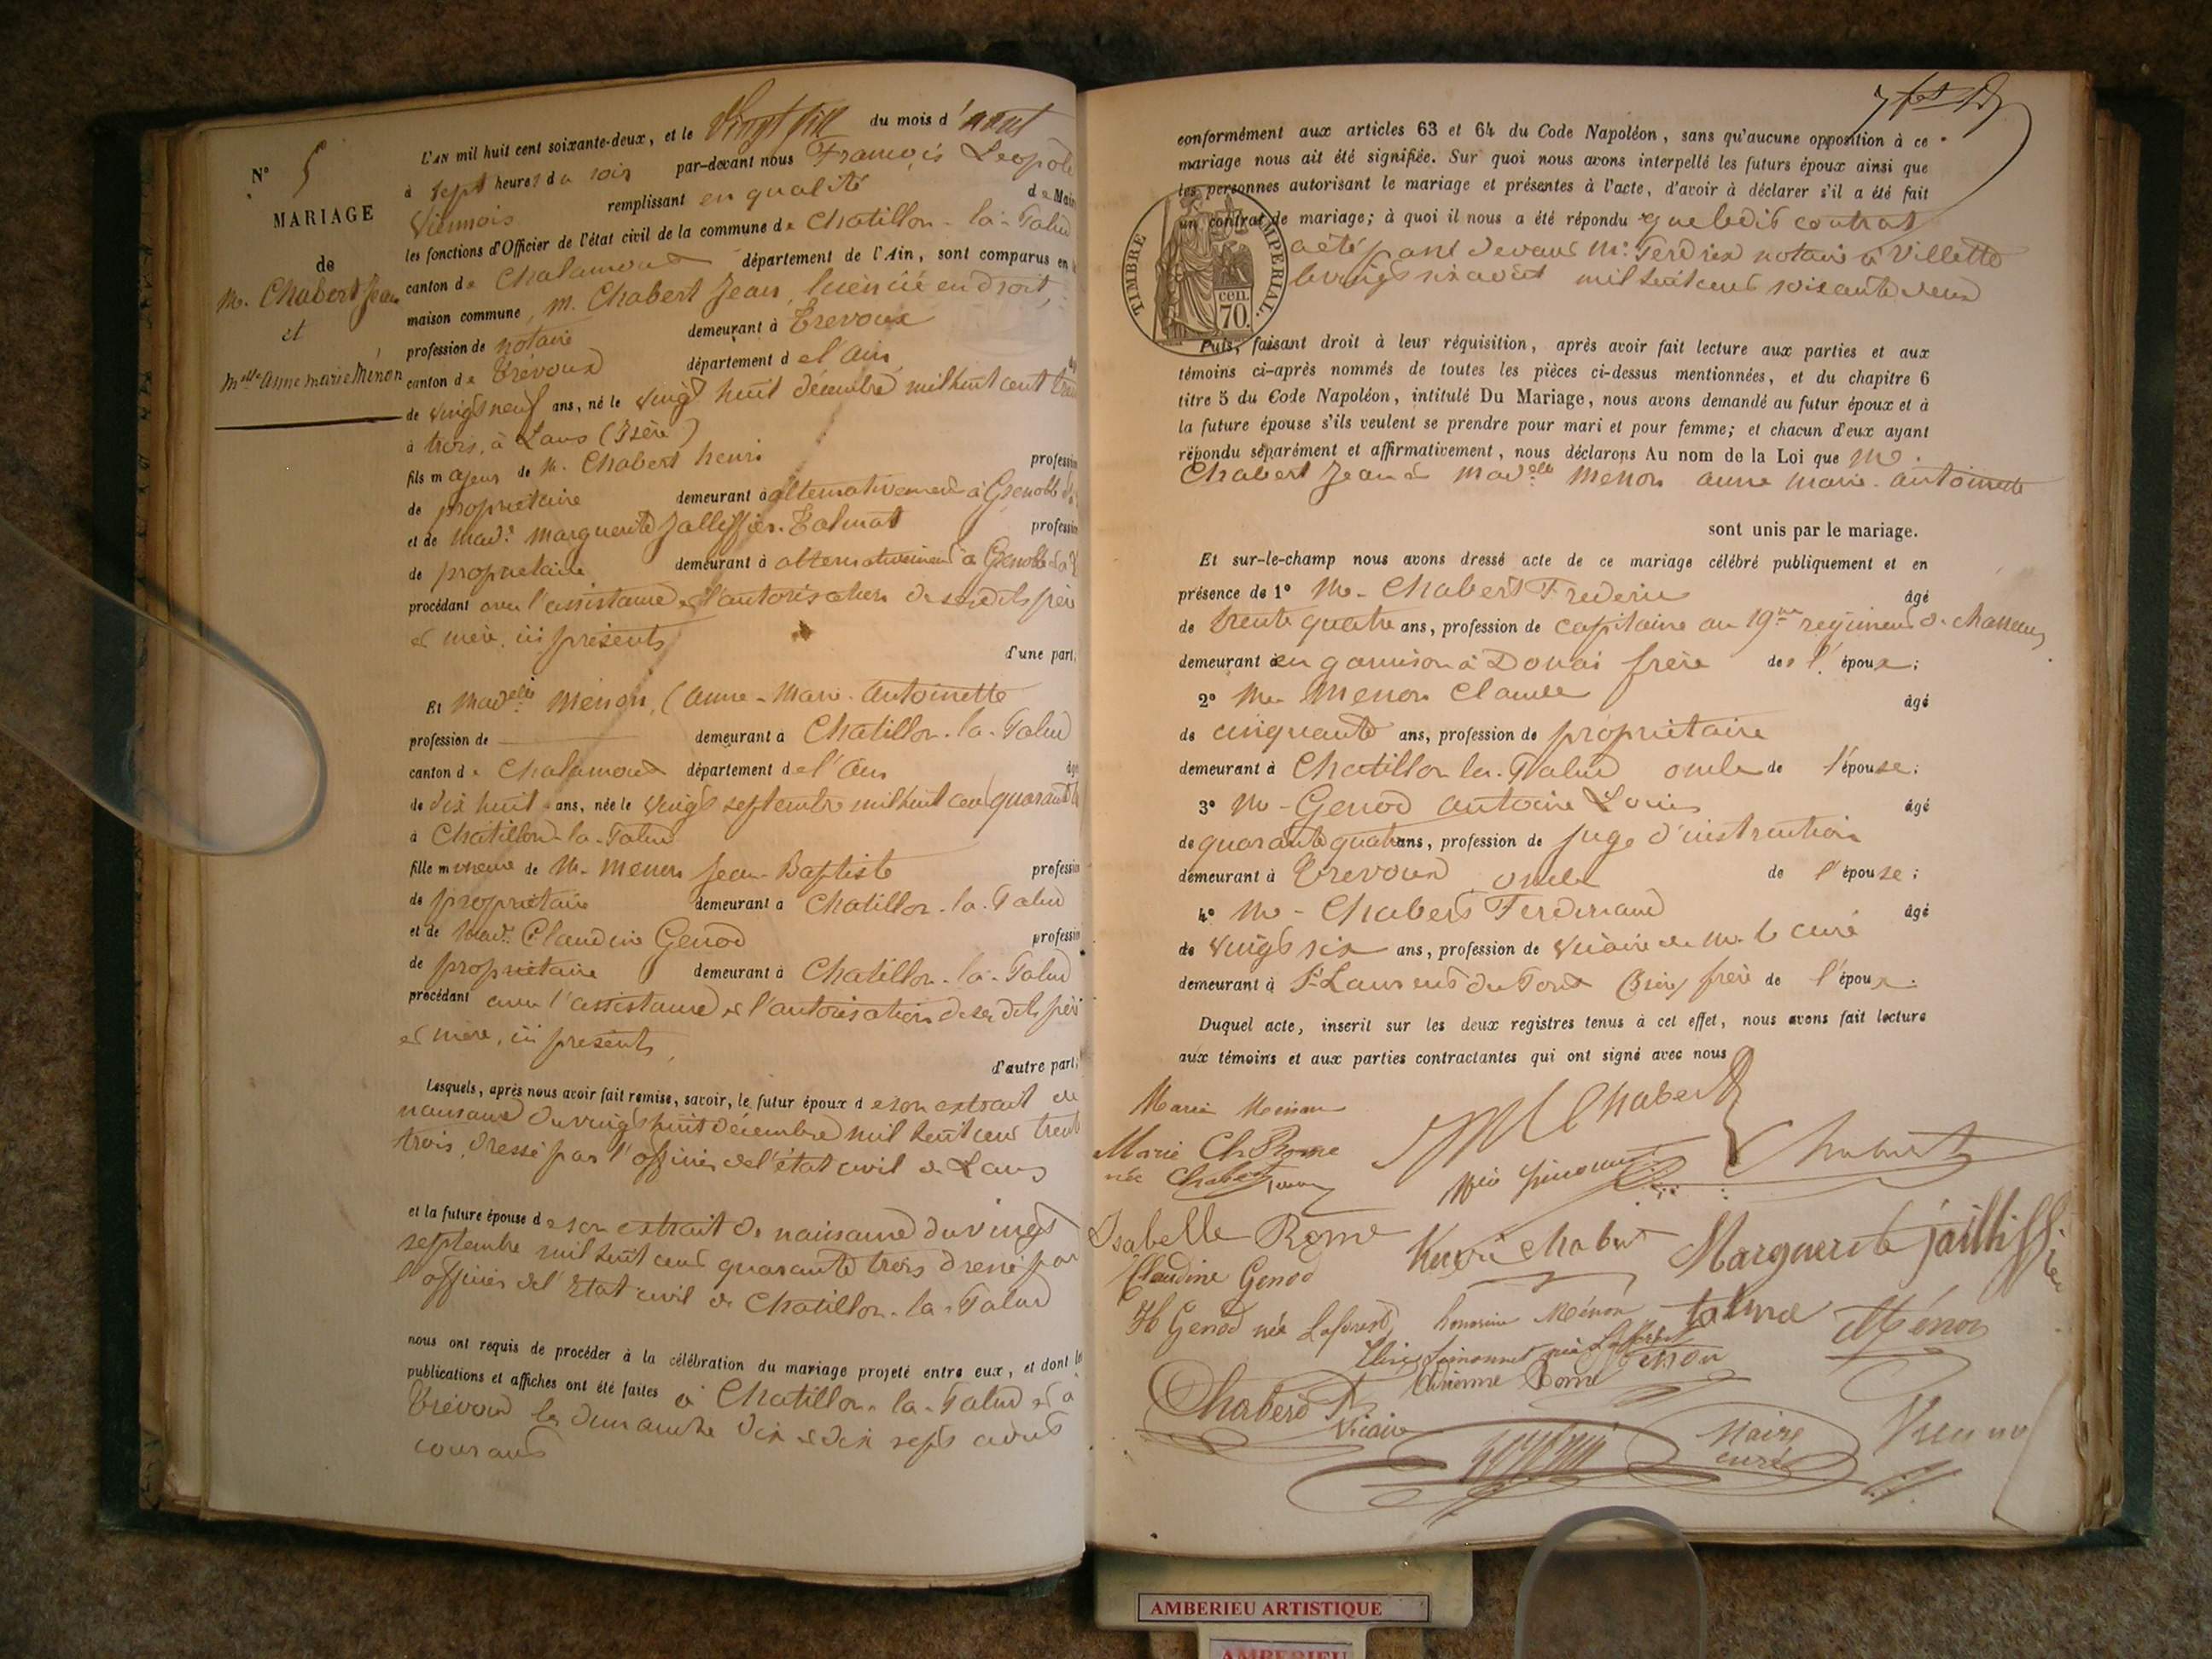 N° 5
MARIAGE
de
M. Chabert Jean
et
Melle Anne marie Ménon
L'AN mil huit cent soixante-deux, et le vingt six du mois d'août
à sept heures du soir par-devant nous François Leopold
Viennois remplissant en qualité de Maire
les fonctions d'Officier de l'état civil de la commune de Chatillon-la-Palud
canton de Chalamont département de l'Ain, sont comparus en la
maison commune, M. Chabert Jean, licencié en droit,
profession de notaire demeurant à Trevoux
canton de Trévoux département de l'Ain
de vingt neuf ans, né le vingt huit décembre mil huit cent trente
à trois, à Lans (Isère)
fils majeur de M. Chabert henri profession
de propriétaire demeurant à alternativement à Grenoble
et de Made Marguerite Jallifier-Talmat profession
de propriétaire demeurant à alternativement à Grenoble
procédant avec l'assistance et l'autorisation de sesdits père
et mère, ici présents
d'une part,
Et Madelle Menon, (Anne-Marie-Antoinette
profession de demeurant à Chatillon-la-Palud
canton de Chalamont département de l'Ain âgé
de dix huit ans, née le vingt septembre mil huit cent quarante
à Chatillon-la-Palud
fille mineure de M. Menon Jean-Baptiste profession
de propriétaire demeurant à Chatillon-la-Palud
et de Made Claudine Genod profession
de propriétaire demeurant à Chatillon-la-Palud
procédant avec l'assistance et l'autorisation de ses dits père
et mère, ici présents,
d'autre part;
Lesquels, après nous avoir fait remise, savoir, le futur époux de son extrait de
naissance du vingt huit décembre mil huit cent trente
trois dressé par l'officier de l'état civil de Lans
et la future épouse de son extrait de naissance du vingt
septembre mil huit cent quarante trois dressé par
l'officier de l'Etat civil de Chatillon-la-Palud
nous ont requis de procéder à la célébration du mariage projeté entre eux, et dont les
publications et affiches ont été faites à Chatillon-la-Palud et à
Trévoux les dimanche dix et dix sept août
courant
conformément aux articles 63 et 64 du Code Napoléon, sans qu'aucune opposition à ce
mariage nous ait été signifiée. Sur quoi nous avons interpellé les futurs époux ainsi que
les personnes autorisant le mariage et présentes à l'acte, d'avoir à déclarer s'il a été fait
un contrat de mariage; à quoi il nous a été répondu que ledit contrat
a été passé devant Me Perdrix notaire à Villette
le vingt six août mil huit cent soixante deux
TIMBRE IMPERIAL.
cen. 70.
Puis, faisant droit à leur réquisition, après avoir fait lecture aux parties et aux
témoins ci-après nommés de toutes les pièces ci-dessus mentionnées, et du chapitre 6
titre 5 du Code Napoléon, intitulé Du Mariage, nous avons demandé au futur époux et à
la future épouse s'ils veulent se prendre pour mari et pour femme; et chacun d'eux ayant
répondu séparément et affirmativement, nous déclarons Au nom de la Loi que Mr
Chabert Jean et Madelle Menon anne marie antoinette
sont unis par le mariage.
Et sur-le-champ nous avons dressé acte de ce mariage célébré publiquement et en
présence de 1° Mr Chabert Frederic âgé
de trente quatre ans, profession de capitaine au 19me regiment de chasseurs
demeurant en garnison à Douai frère de l'époux;
2° Mr Menon Claude âgé
de cinquante ans, profession de propriétaire
demeurant à Chatillon la-Palud oncle de l'épouse;
3° Mr Genod Antoine Louis âgé
de quarante quatre ans, profession de juge d'instruction
demeurant à Trevoux oncle de l'épouse;
4° Mr Chabert Ferdinand âgé
de vingt six ans, profession de vicaire de M. le curé
demeurant à St Laurent du Pont (Isère) frère de l'époux.
Duquel acte, inscrit sur les deux registres tenus à cet effet, nous avons fait lecture
aux témoins et aux parties contractantes qui ont signé avec nous
Marie Menon
Chabert
Marie Ch. Rome
née Chabert
Chabert
Isabelle Rome
Henri Chabert
Marguerite jaillifier
Claudine Genod
H Genod née Laforest
honorine Ménon
talmat
Ménon
Menon
Rome
Chabert
Vicaire
Maire
curé
AMBERIEU ARTISTIQUE
AMBERIEU